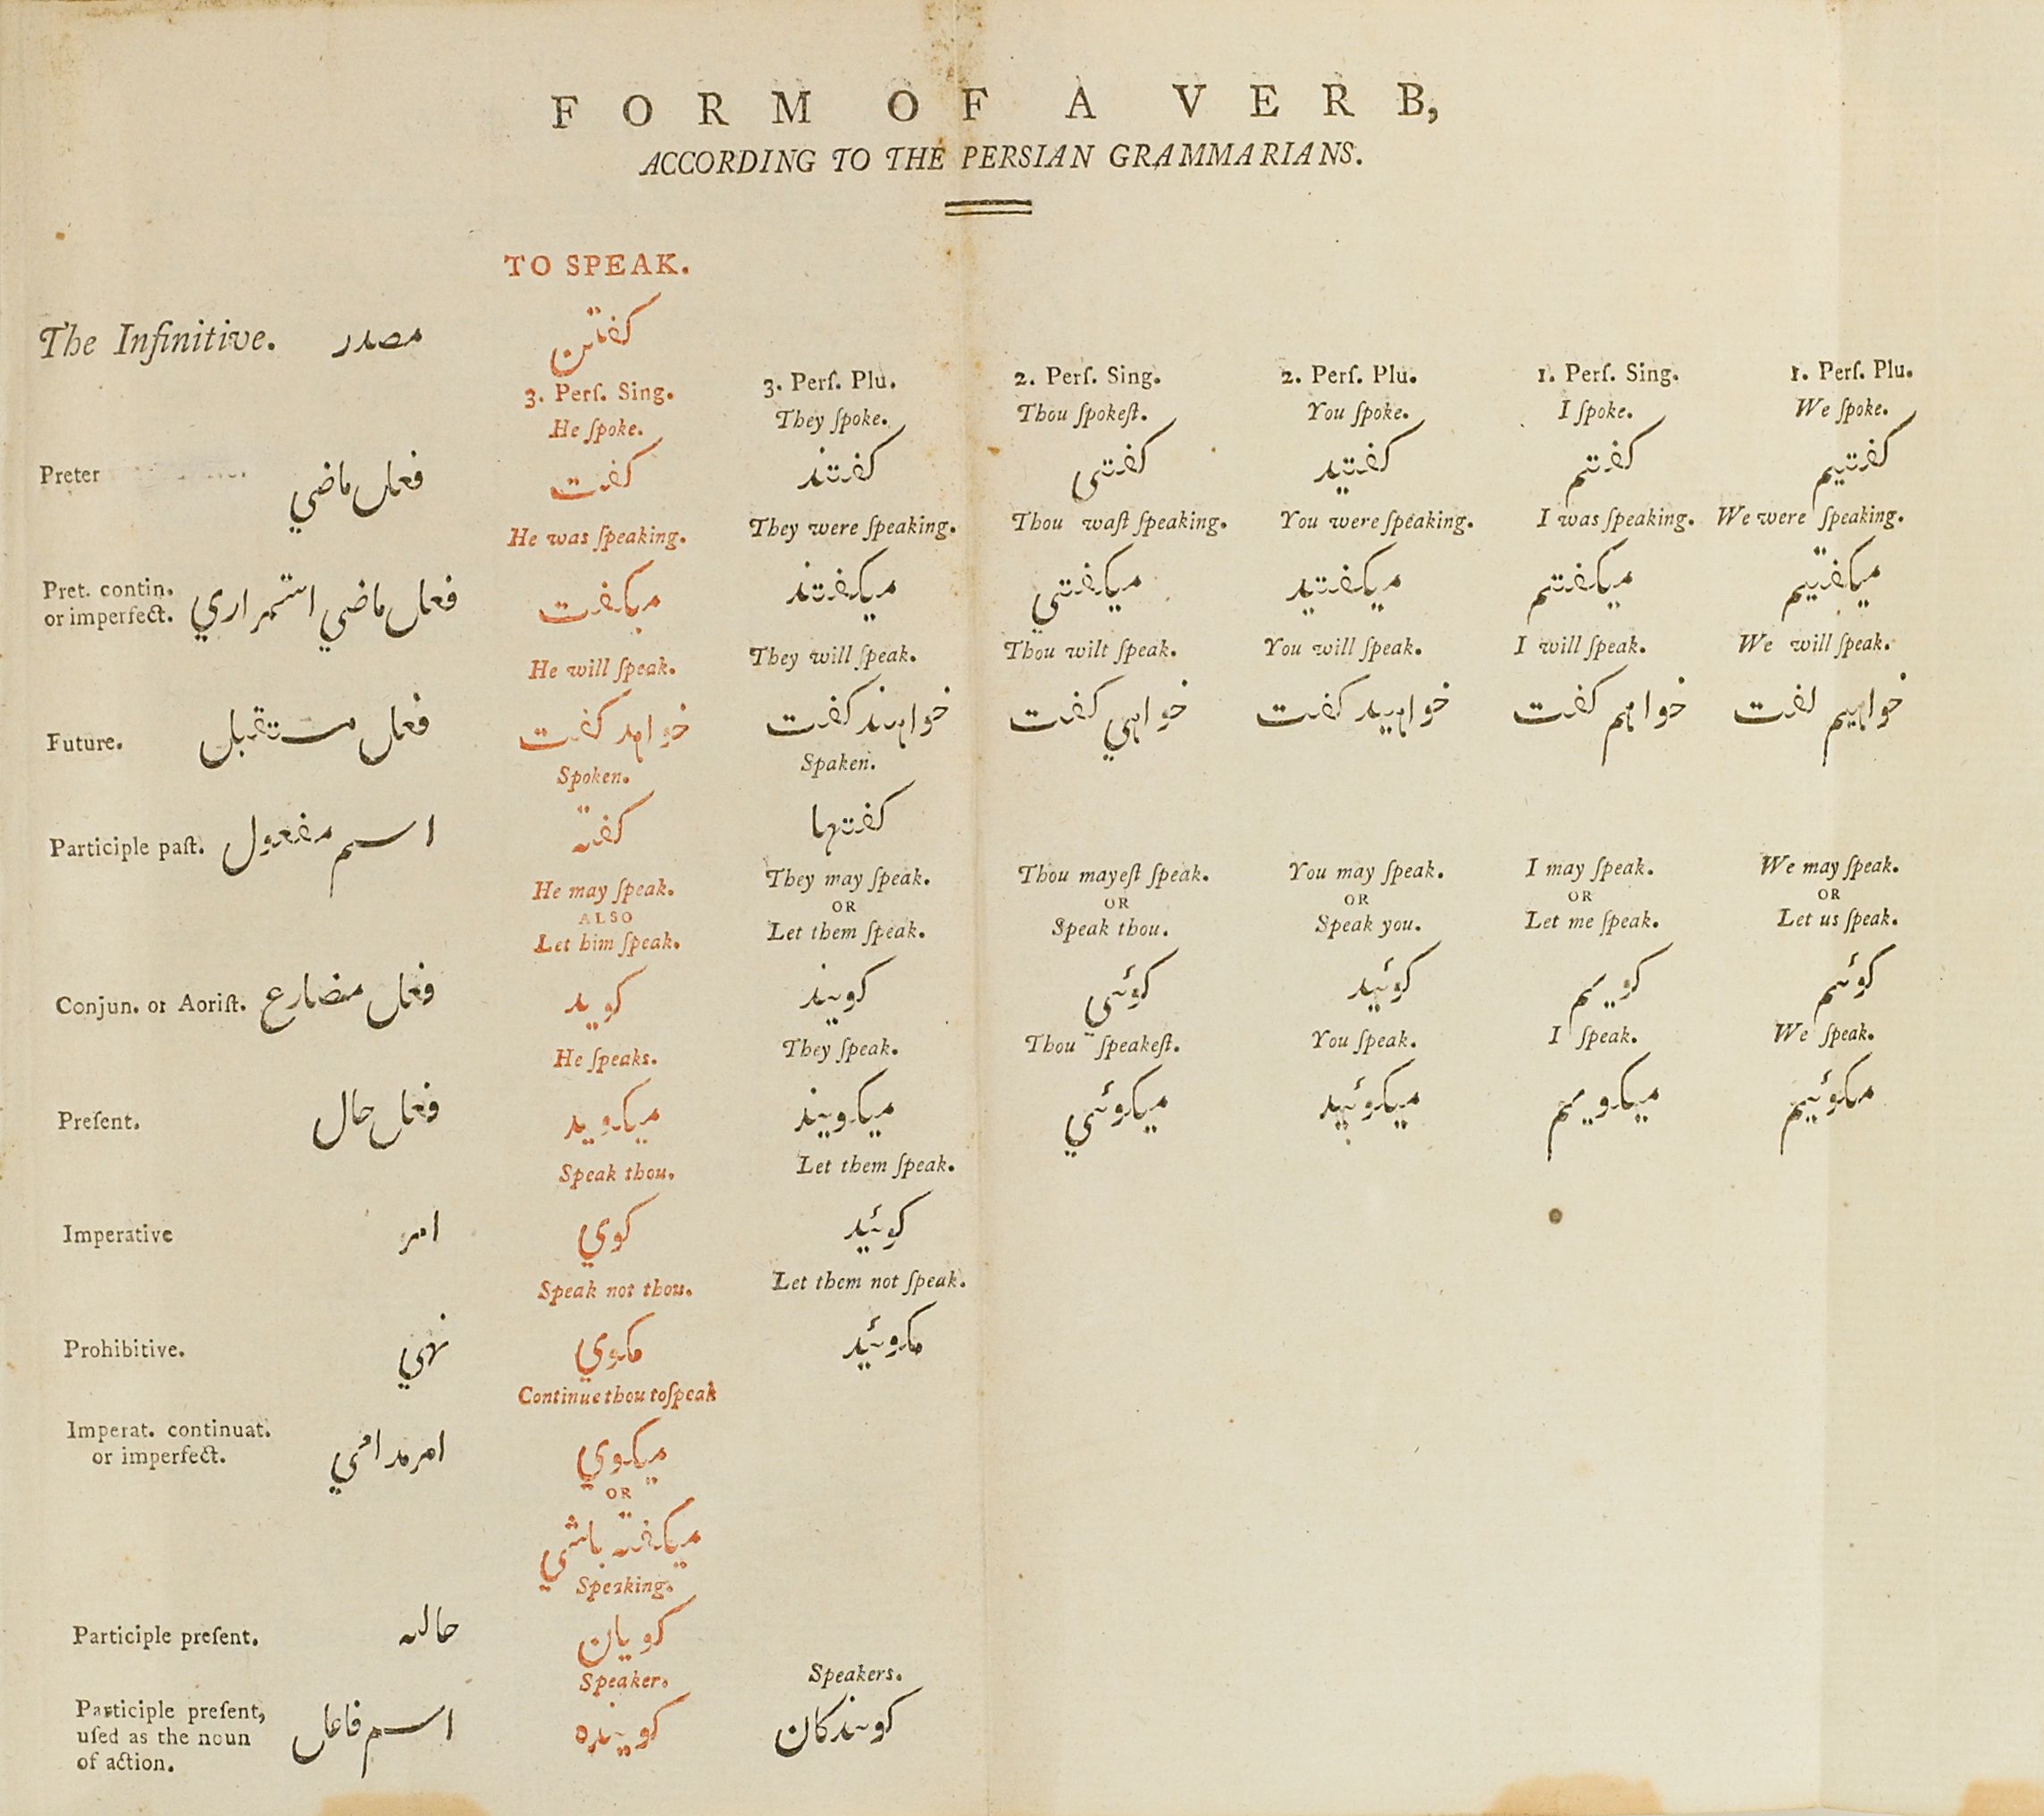 FORM OF A VERB,
ACCORDING TO THE PERSIAN GRAMMARIANS.
TO SPEAK.
The Infinitive. مصدر كفتن
3. Perſ. Sing. 3. Perſ. Plu. 2. Perſ. Sing. 2. Perſ. Plu. 1. Perſ. Sing. 1. Perſ. Plu.
He ſpoke. They ſpoke. Thou ſpokeſt. You ſpoke. I ſpoke. We ſpoke.
Preter فعل ماضي كفت كفتند كفتى كفتيد كفتم كفتيم
He was ſpeaking. They were ſpeaking. Thou waſt ſpeaking. You were ſpeaking. I was ſpeaking. We were ſpeaking.
Pret. contin.
or imperfect. فعل ماضي استمراري ميكفت ميكفتند ميكفتي ميكفتيد ميكفتم ميكفتيم
He will ſpeak. They will ſpeak. Thou wilt ſpeak. You will ſpeak. I will ſpeak. We will ſpeak.
Future. فعل مستقبل خواهد كفت خواهند كفت خواهي كفت خواهيد كفت خواهم كفت خواهيم لفت
Spoken. Spaken.
Participle paſt. اسم مفعول كفته كفتها
He may ſpeak. They may ſpeak. Thou mayeſt ſpeak. You may ſpeak. I may ſpeak. We may ſpeak.
ALSO OR OR OR OR OR
Let him ſpeak. Let them ſpeak. Speak thou. Speak you. Let me ſpeak. Let us ſpeak.
Conjun. or Aoriſt. فعل مضارع كويد كويند كوئي كوئيد كويم كوئيم
He ſpeaks. They ſpeak. Thou ſpeakeſt. You ſpeak. I ſpeak. We ſpeak.
Preſent. فعل حال ميكويد ميكويند ميكوئي ميكوئيد ميكويم ميكوئيم
Speak thou. Let them ſpeak.
Imperative امر كوي كوئيد
Speak not thou. Let them not ſpeak.
Prohibitive. نهي مكوي مكوئيد
Continue thou to ſpeak
Imperat. continuat.
or imperfect. امر مدامي ميكوي
OR
ميكفته باشي
Speaking.
Participle preſent. حاليه كويان
Speaker. Speakers.
Participle preſent,
uſed as the noun
of action. اسم فاعل كوينده كويندكان